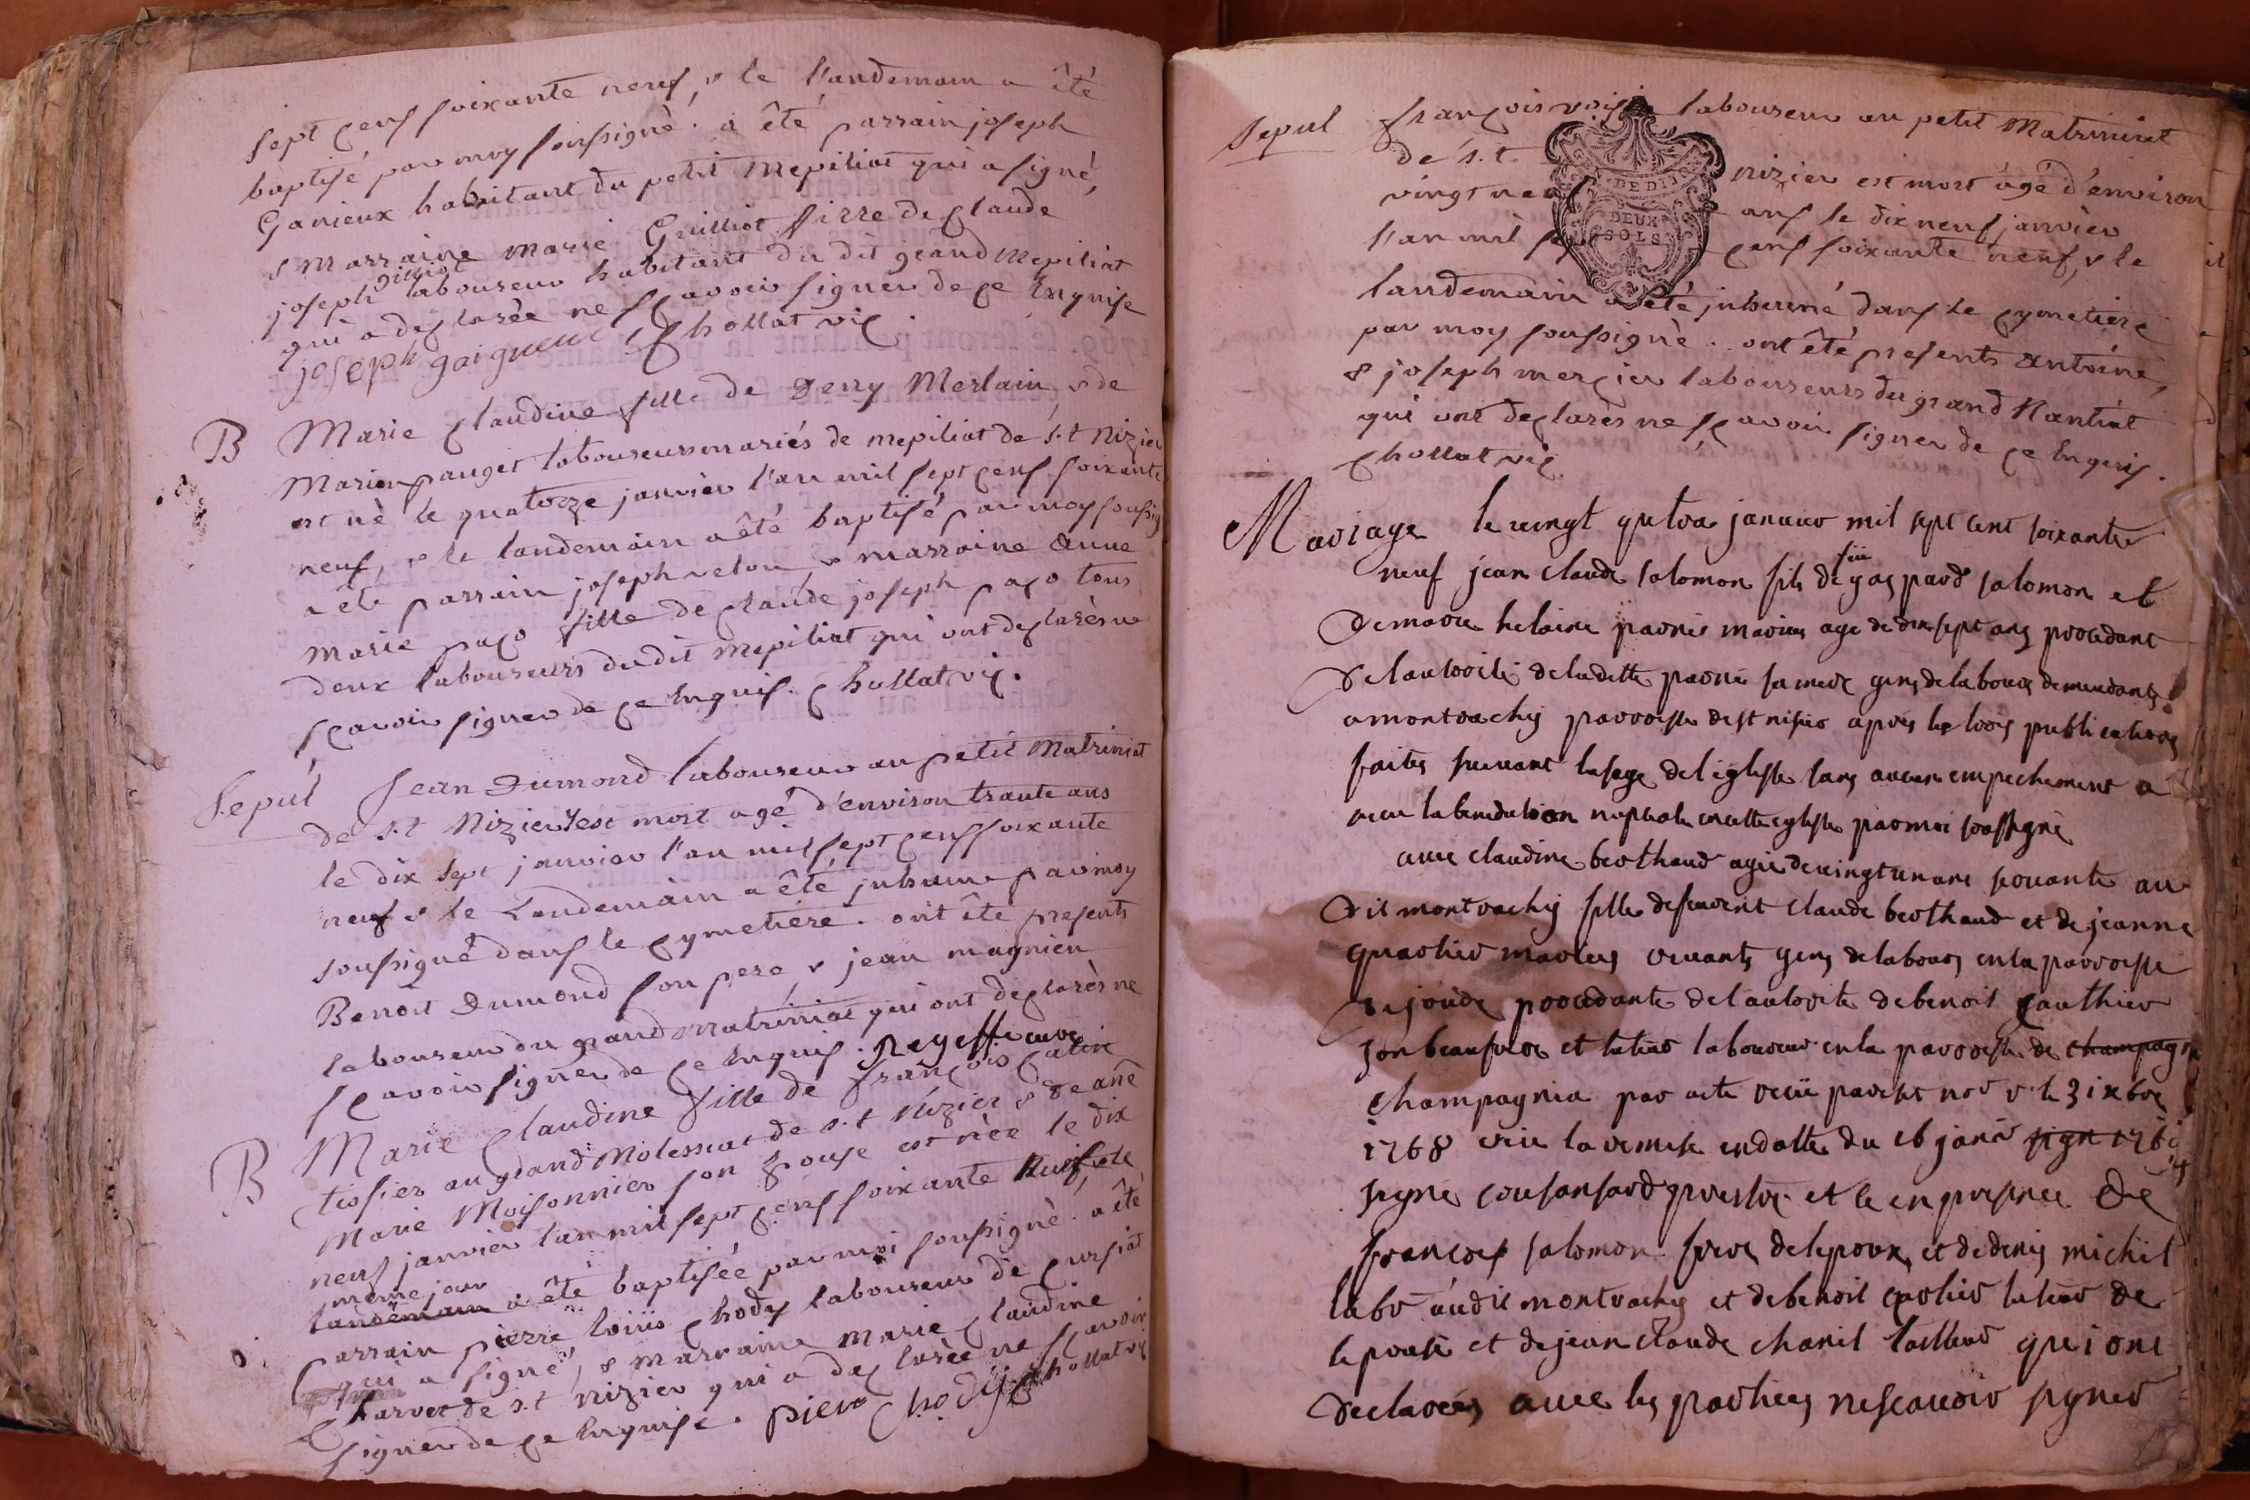 sept cens soixante neuf, & le landemain a été
baptisé par moy soussigné. a été parrain joseph
Ganieux habitant du petit Mepiliat qui a signé,
& marraine marie Guilliot fille de claude
joseph Guiliot laboureur habitant du dit grand Mepiliat
qui a declarée ne sçavoir signer de ce enquise
joseph gaigneux Chollat vic.
B Marie Claudine fille de Deny Merlain & de
Marie pauget laboureurs mariés de mepiliat de s.t Nizier
est né le quatorze janvier l'an mil sept cens soixante
neuf, & le landemain a été baptisé par moy soussig
a été parrain joseph velon & marraine anne
marie paco fille de claude joseph paco tous
deux laboureurs du dit mepiliat qui ont declarés ne
sçavoir signer de ce enquis. Chollat vic.
Sepul Jean Dumond laboureur au petit Matriniat
de s.t Nizier est mort agé d'environ trante ans
le dix sept janvier l'an mil sept cens soixante
neuf & le landemain a été inhumé par moy
soussigné dans le cymetiére. ont été presents
Benoit Dumond son pere & jean magnien
laboureur du grand matriniat qui ont declarés ne
sçavoir signer de ce enquis. Regeffe curé
B Marie Claudine fille de françois catin
tissier au grand Molessiat de s.t Nizier & de ané
Marie Moisonnier son epouse est née le dix
neuf janvier l'an mil sept cens soixante Neuf, & le
même jour
landemain a été baptisée par moi soussigné. a été
parrain pierre loüis chody laboureur de cursiat
qui a signé, & marraine marie claudine
Charvet de s.t nizier qui a declarée ne sçavoir
signer de ce enquise. pierre Chody Chollat vic
Sepul françois voisin laboureur au petit Matriniat
de s.t nizier est mort âgé d'environ
vingt neuf ans le dix neuf janvier
l'an mil sept cens soixante neuf, & le
DEUX
SOLS
landemain a été inhumé dans le cymetiere
par moy soussigné. ont été presents antoine,
& joseph mercier laboureurs du grand Nantiat
qui ont declarés ne sçavoir signer de ce enquis.
Chollat vic.
Mariage le vingt quatre janvier mil sept cent soixante
neuf jean claude salomon fils de feu gaspard salomon et
de marie helaine mariés age de dix sept ans procedant
de lautorité de ladette sa mere gens de labour demeurants
a montrachy parroisse de st nisier apres les trois publications
faites suivant lusage de léglise sans aucun empechement a
recu la benediction nuptiale en cette eglise par moi soussigné
avec claudine berthaud agée de vingt un ans servante au
dit montrachy fille de feuvent claude berthaud et de jeanne
mariés vivants gens de labour en la parroisse
de joude procedante de lautorité de benoit gauthier
son beaufrere et tuteur laboureur en la parroisse de champagn
champagnia par acte recü par le 3 ixbre
1768 veu la remise en datte du 16 janv sign 1769
signe cousansard prestre et ce en presence de
francois salomon frere de lepoux et de denis michel
labr audit montrachy et de benoit tuteur de
lepouse et de jean claude chanel tailleur qui ont
declarés avec les parties ne scavoir signer